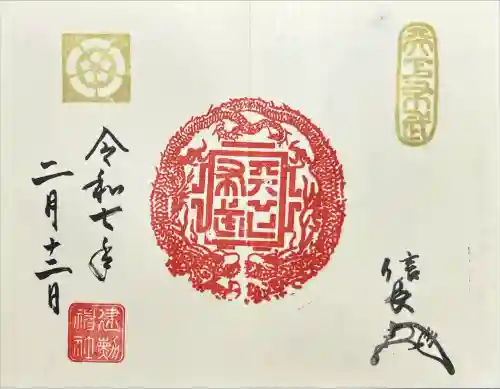 天下布武
天下布武
信長
令和七年
二月十三日
建勲神社